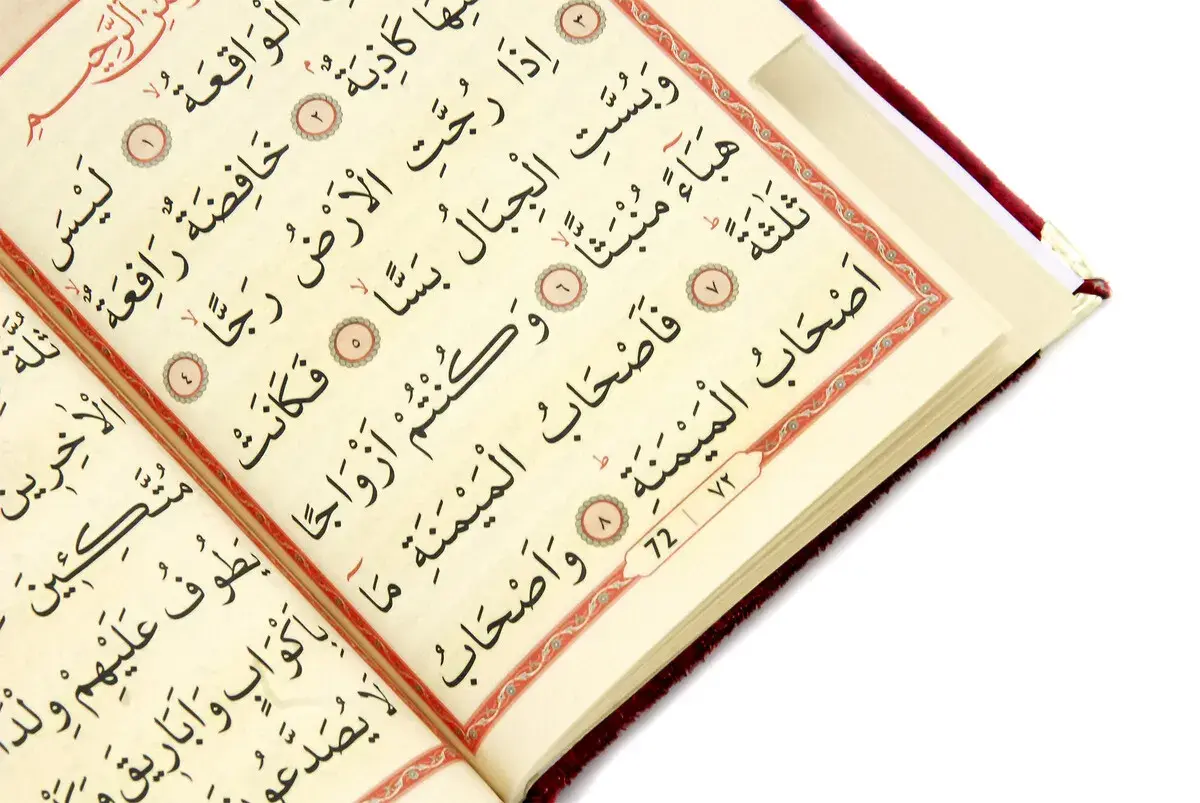 الرَّحِيمِ
الْوَاقِعَةُ ۙ ١ لَيْسَ
كَاذِبَةٌ ۢ ٢ خَافِضَةٌ رَافِعَةٌ ۙ
٣ اِذَا رُجَّتِ الْاَرْضُ رَجًّا ۙ ٤
وَبُسَّتِ الْجِبَالُ بَسًّا ۙ ٥ فَكَانَتْ
هَبَٓاءً مُنْبَثًّا ۙ ٦ وَكُنْتُمْ اَزْوَاجًا
ثَلٰثَةً ۜ ٧ فَاَصْحَابُ الْمَيْمَنَةِ مَٓا
اَصْحَابُ الْمَيْمَنَةِ ۜ ٨ وَاَصْحَابُ
72 | ٧٢
ثُلَّةٌ
الْاٰخِرِينَ
مُتَّكِـِٔينَ
يَطُوفُ عَلَيْهِمْ
بِاَكْوَابٍ وَاَبَارِيقَ
لَا يُصَدَّعُونَ